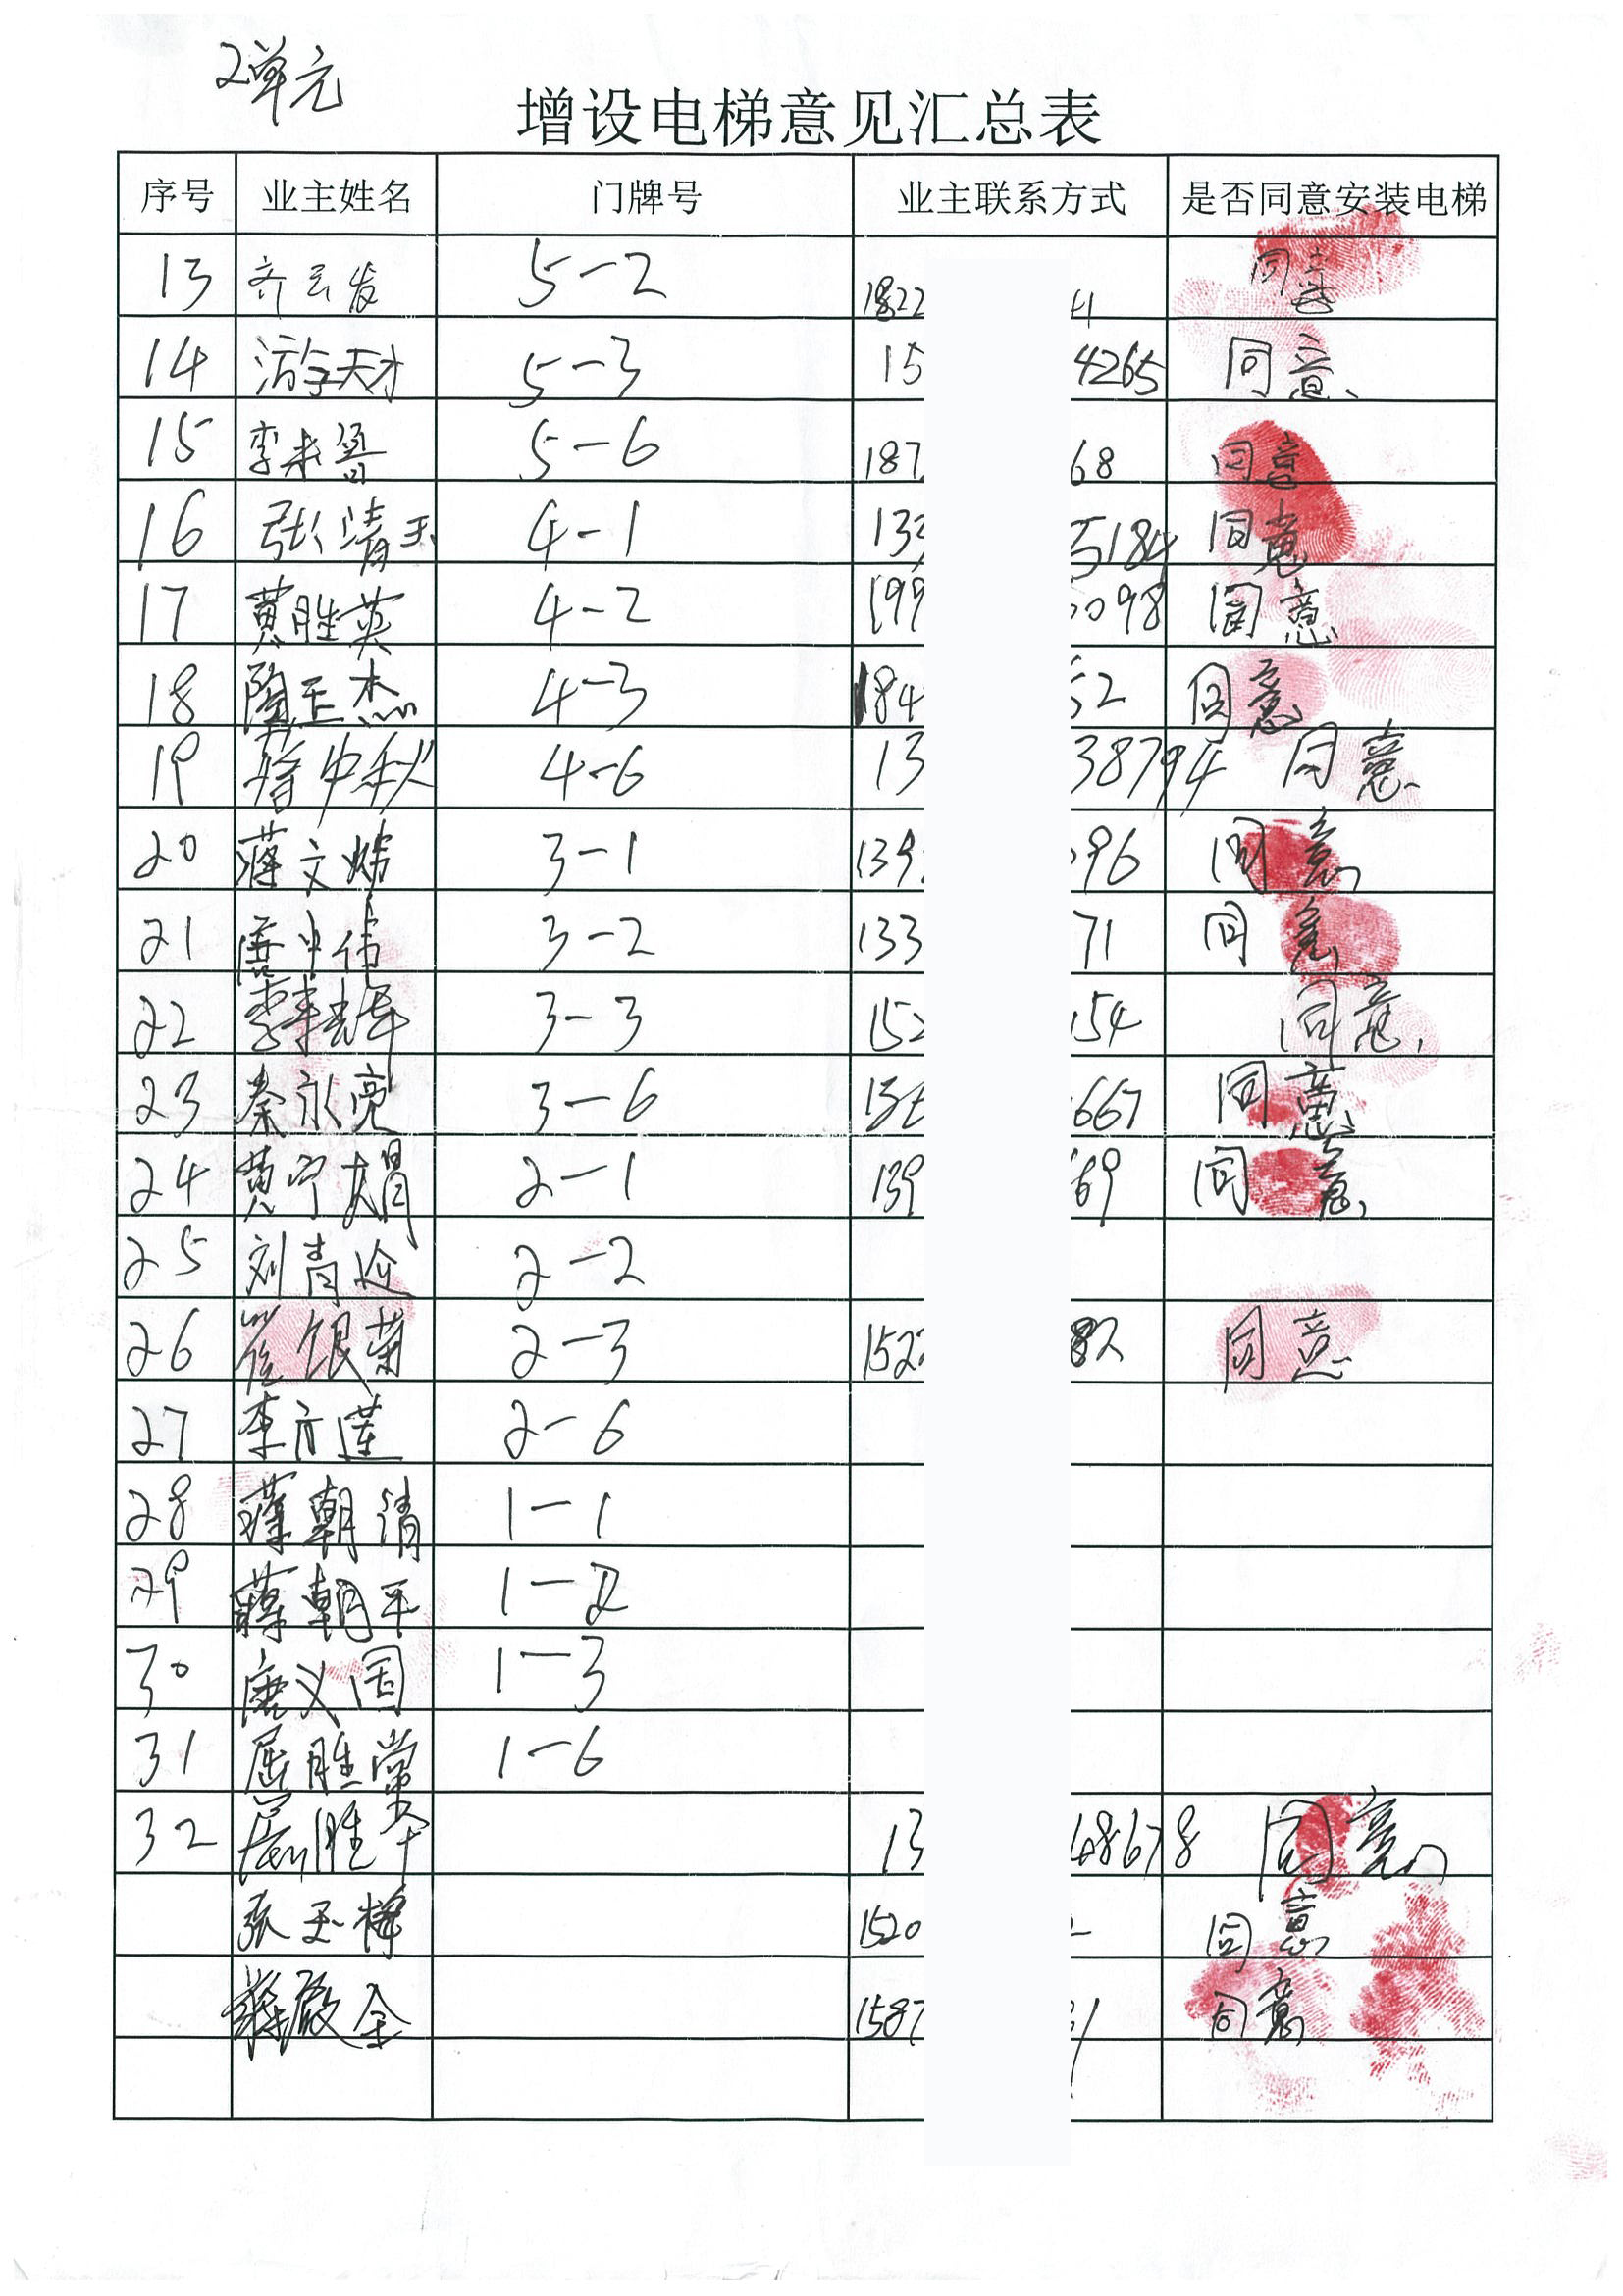 2单元
增设电梯意见汇总表
序号 业主姓名 门牌号 业主联系方式 是否同意安装电梯
13 齐云发 5-2 1822 41 同意
14 游学天才 5-3 15 4265 同意
15 李来 5-6 187 68 同意
16 张清玉 4-1 133 5184 同意
17 黄胜英 4-2 199 098 同意
18 陶正杰 4-3 184 52 同意
19 蒋中秋 4-6 13 38794 同意
20 蒋文 3-1 139 96 同意
21 唐中伟 3-2 133 71 同意
22 李 3-3 152 154 同意
23 秦永亮 3-6 667 同意
24 黄宁娟 2-1 139 69 同意
25 刘青 2-2
26 银菊 2-3 152 82 同意
27 李方莲 2-6
28 蒋朝清 1-1
29 蒋朝平 1-2
30 唐义国 1-3
31 屈胜常 1-6
32 屈胜平 13 48678 同意
张玉梅 1520 同意
蒋 全 1587 1 同意